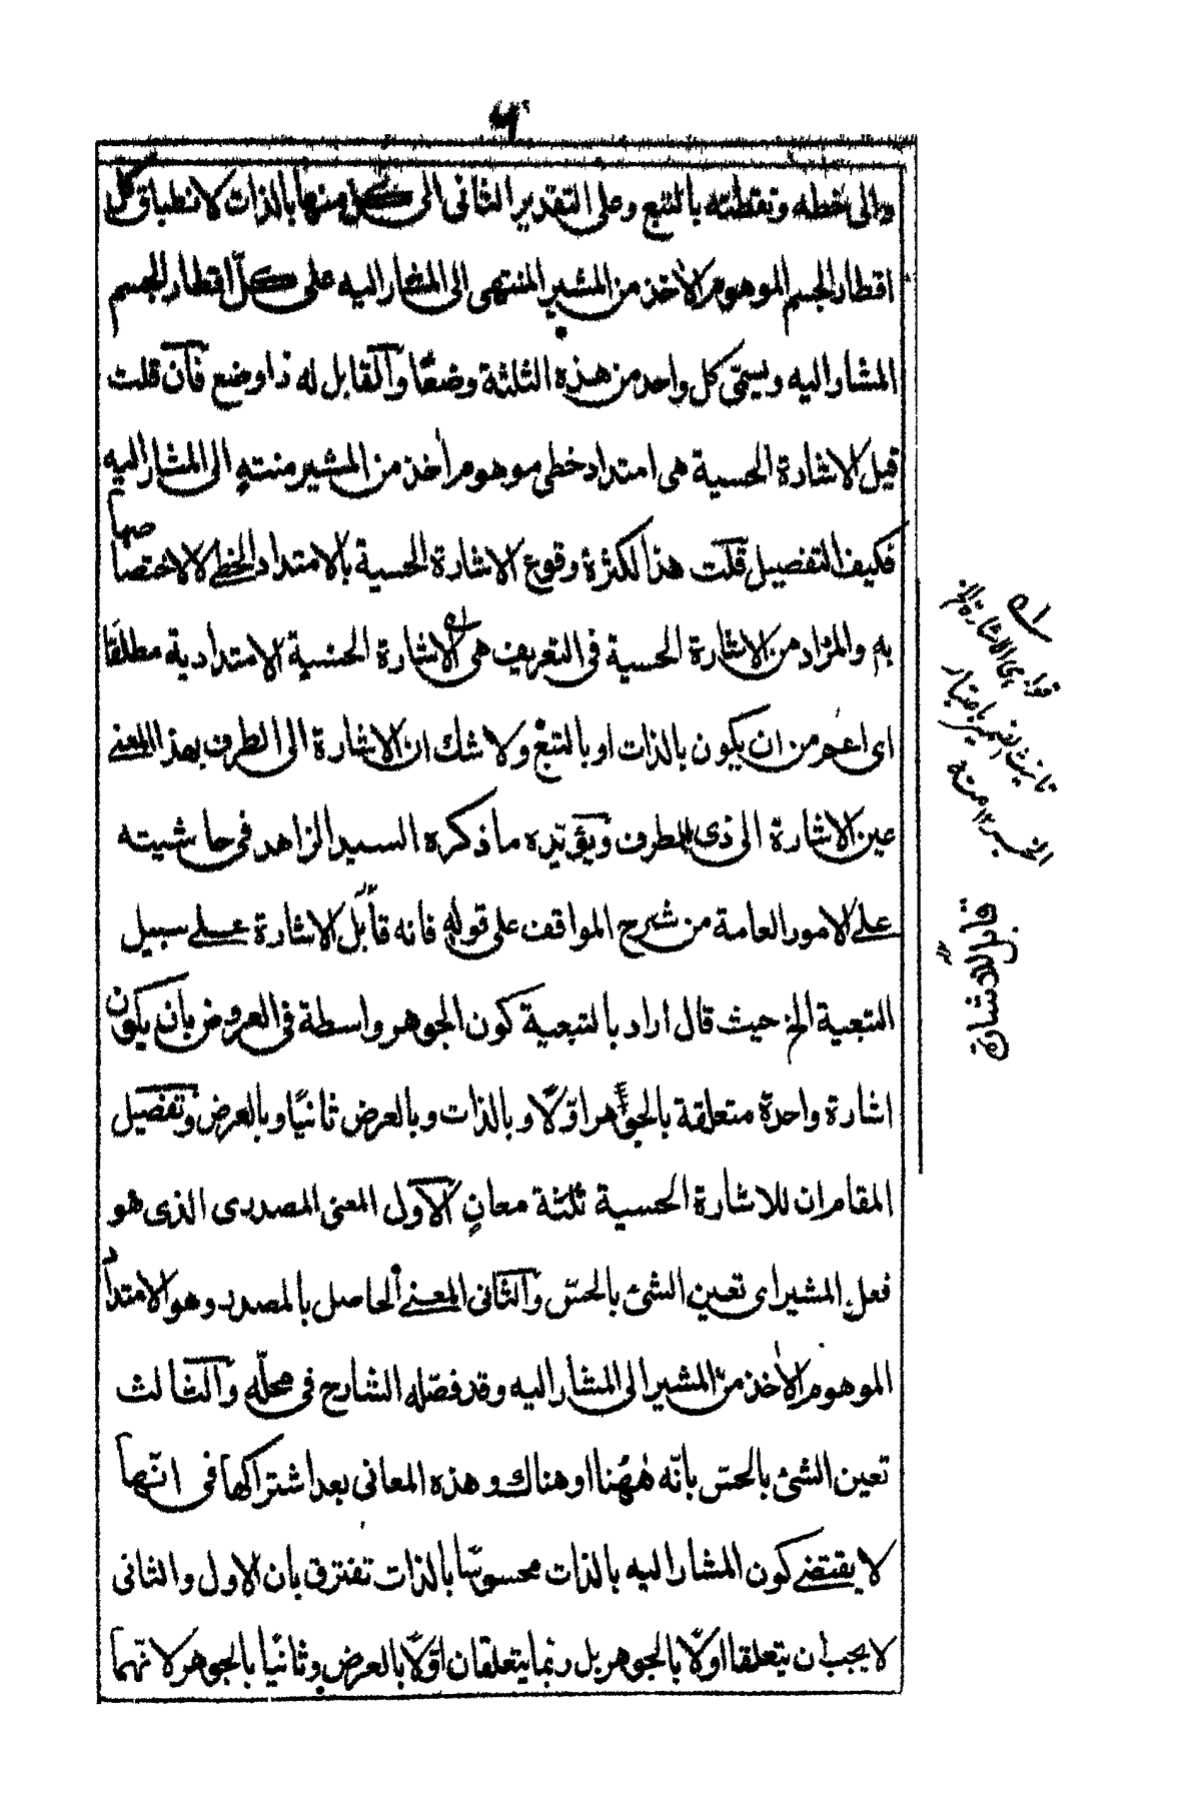 ٦
والى خطه ونقطته بالتبع وعلى التقدير الثانى الى كل منها بالذات لانطباق كل
اقطار الجسم الموهوم الآخذ من المشير المنتهى الى المشار اليه على كلّ اقطار الجسم
المشار اليه ويسمّى كل واحد من هذه الثلثة وضعًا والقابل له ذا وضع فان قلت
قيل الاشارة الحسية هى امتداد خطى موهوم آخذ من المشير منتهٍ الى المشار اليه
فكيف التفصيل قلت هذا لكثرة وقوع الاشارة الحسية بالامتداد الخطى لا لاختصاصها
به والمراد من الاشارة الحسية فى التعريف هى الاشارة الحسية الامتدادية مطلقًا
اى اعم من ان يكون بالذات او بالتبع ولا شك ان الاشارة الى الطرف بهذا المعنى
عين الاشارة الى ذى الطرف ويؤيّده ما ذكره السيد الزاهد فى حاشيته
على الامور العامة من شرح المواقف على قوله فانه قابل الاشارة على سبيل
التبعية الخ حيث قال اراد بالتبعية كون الجوهر واسطة فى العروض بان يكون
اشارة واحدة متعلقة بالجوهر اوّلًا وبالذات وبالعرض ثانيًا وبالعرض وتفصيل
المقام ان للاشارة الحسية ثلثة معانٍ الاول المعنى المصدرى الذى هو
فعل المشير اى تعين الشئ بالحسّ والثانى المعنى الحاصل بالمصدر وهو الامتداد
الموهوم الآخذ من المشير الى المشار اليه وقد فصّله الشارح فى محلّه والثالث
تعين الشئ بالحسّ بانّه ههنا او هناك وهذه المعانى بعد اشتراكها فى انّها
لا يقتضى كون المشار اليه بالذات محسوسًا بالذات تفترق بان الاول والثانى
لا يجب ان يتعلقا اولًا بالجوهر بل ربما يتعلقان اوّلًا بالعرض وثانيًا بالجوهر لانّهما
قوله هى الاشارة الخ
تانيث الضمير باعتبار
الخبر ١٢ منه
قابل للاشارة